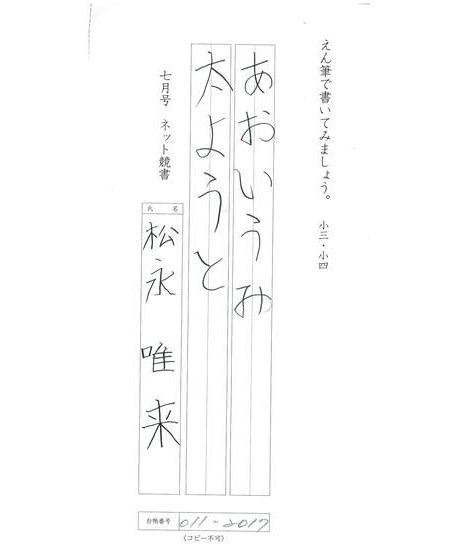 えん筆で書いてみましょう。 小三・小四
あおいうみ
太ようと
七月号 ネット競書
氏名
松永 唯来
台帳番号 011-2017
(コピー不可)